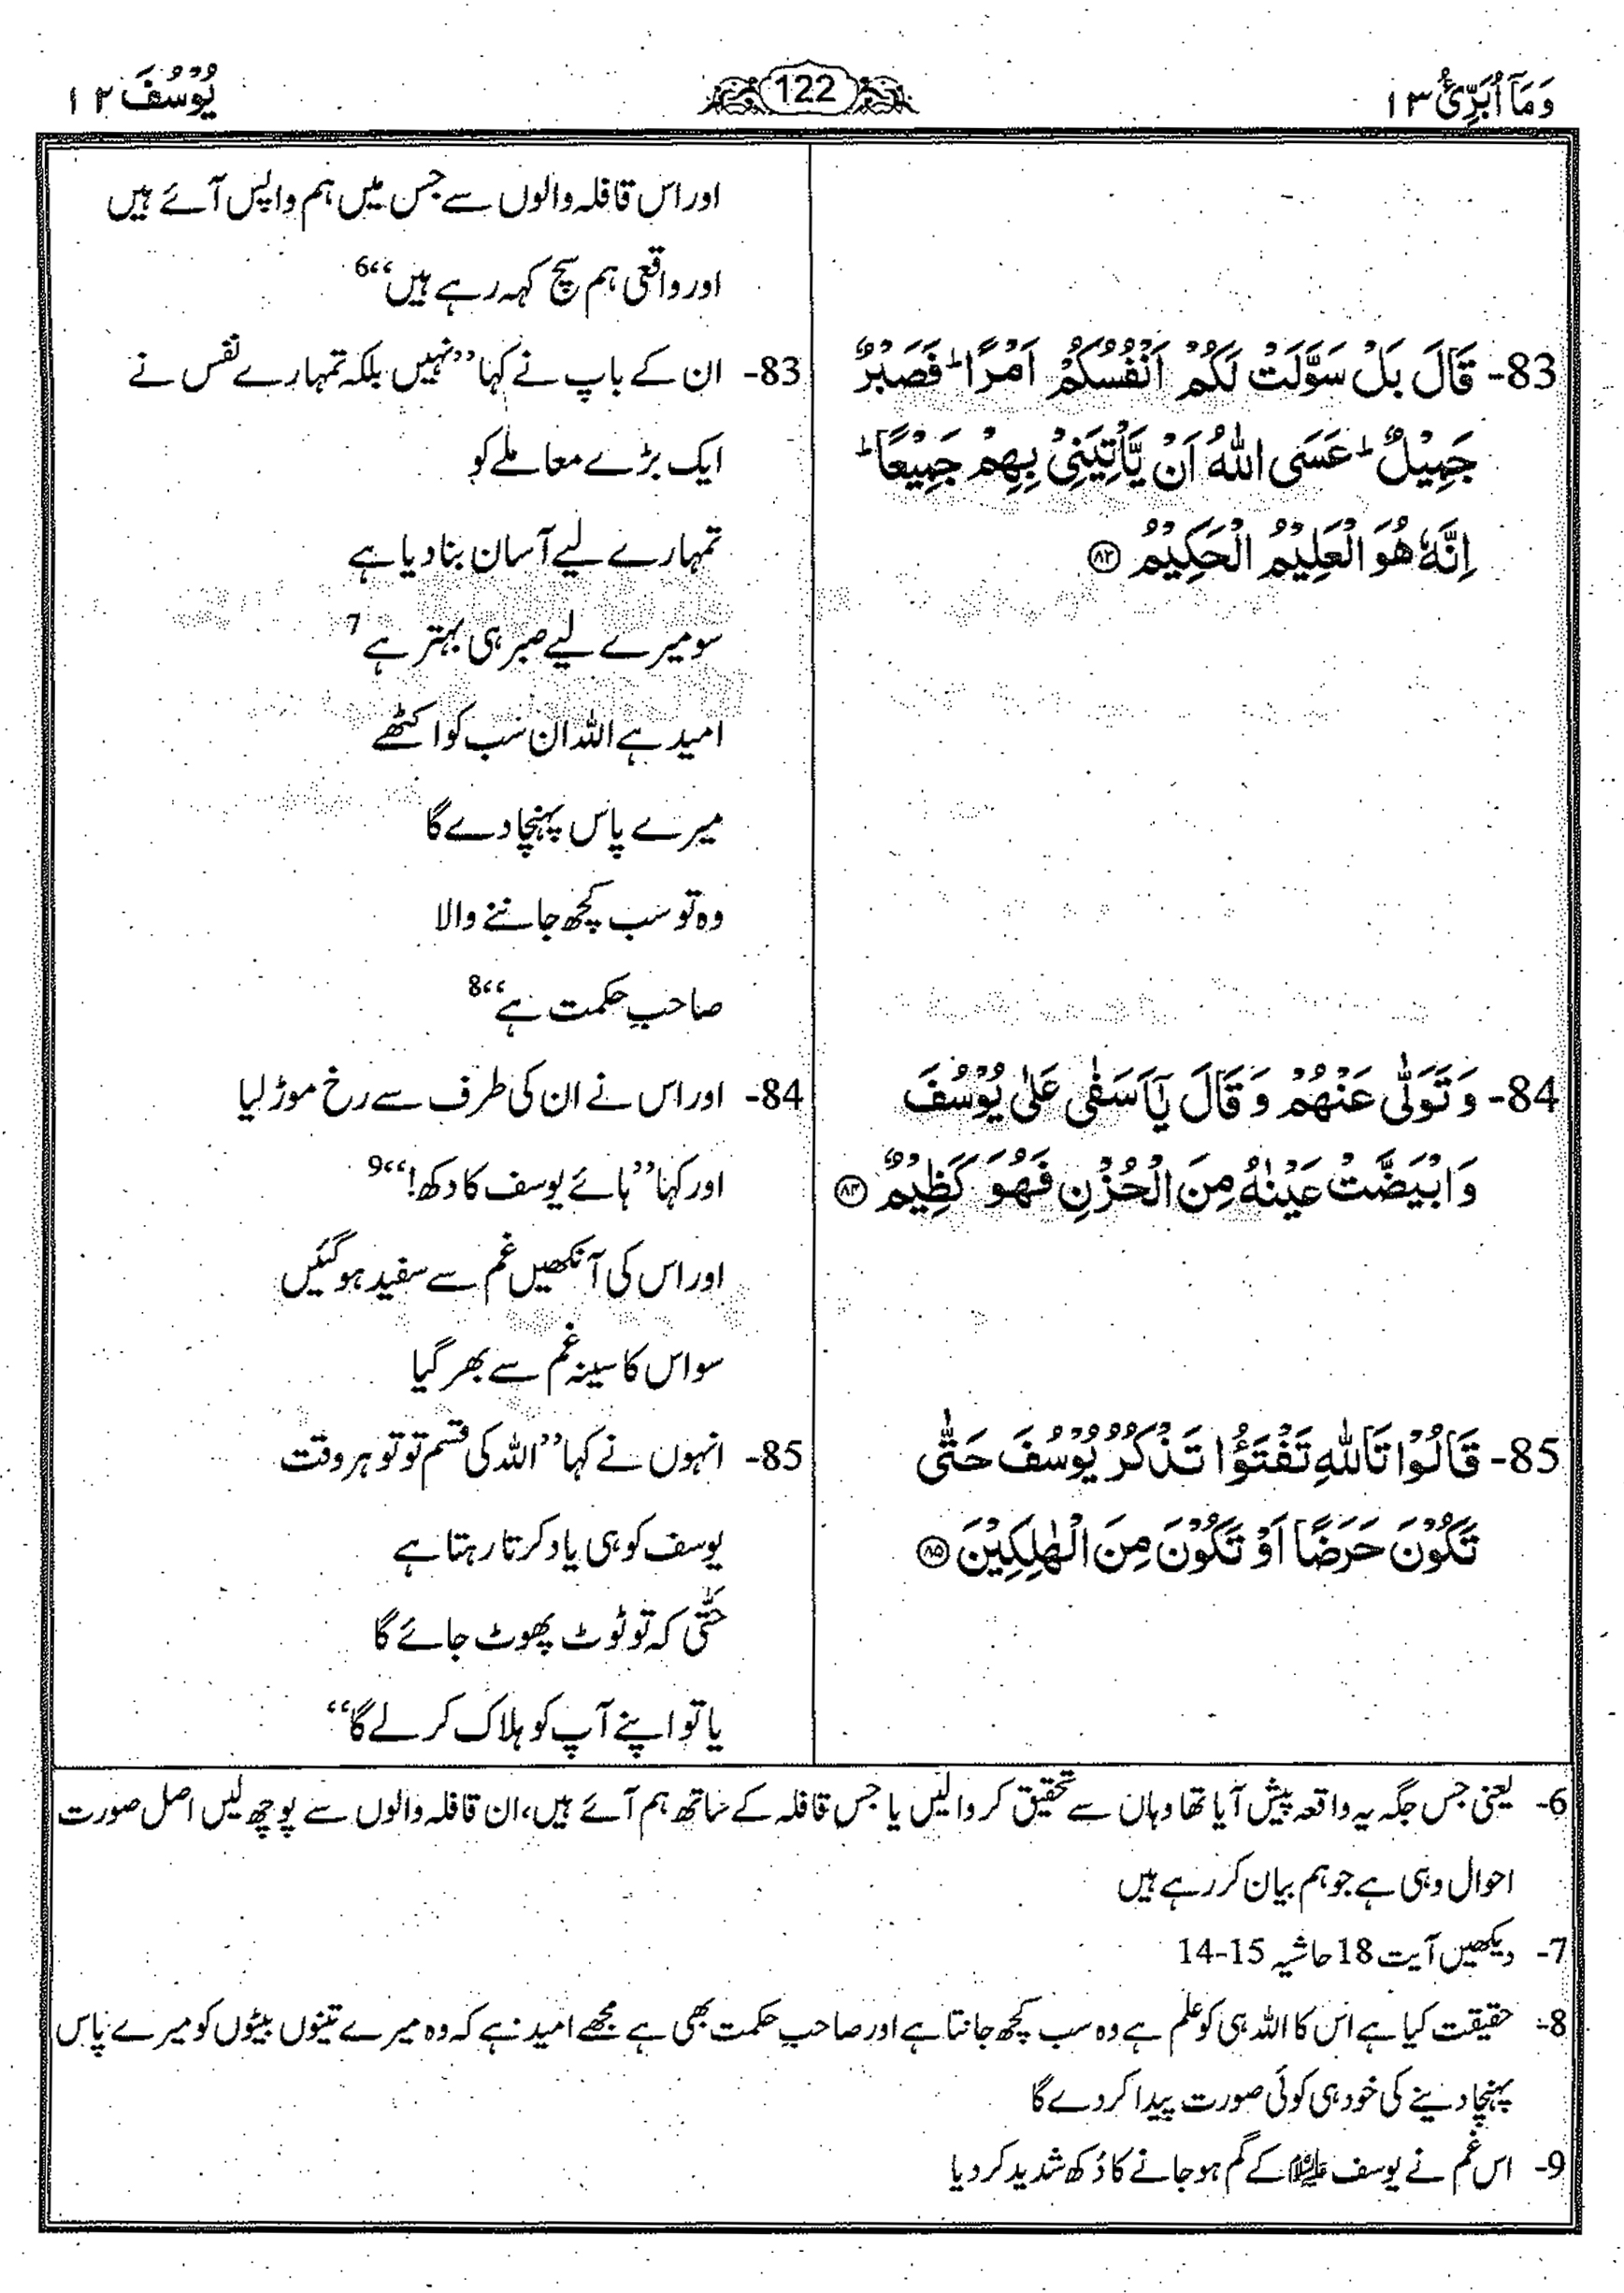 وَمَآ اُبَرِّئُ ۱۳
122
يُوْسُفَ ۱۲
اور اس قافلہ والوں سے جس میں ہم واپس آئے ہیں
اور واقعی ہم سچ کہہ رہے ہیں‘‘6
83- قَالَ بَلْ سَوَّلَتْ لَكُمْ اَنْفُسُكُمْ اَمْرًا ؕ فَصَبْرٌ
جَمِيْلٌ ؕ عَسَى اللّٰهُ اَنْ يَّاْتِيَنِىْ بِهِمْ جَمِيْعًا ؕ
اِنَّهٗ هُوَ الْعَلِيْمُ الْحَكِيْمُ ۝۸۳
83- ان کے باپ نے کہا ’’نہیں بلکہ تمہارے نفس نے
ایک بڑے معاملے کو
تمہارے لیے آسان بنا دیا ہے
سو میرے لیے صبر ہی بہتر ہے7
امید ہے اللہ ان سب کو اکٹھے
میرے پاس پہنچا دے گا
وہ تو سب کچھ جاننے والا
صاحبِ حکمت ہے‘‘8
84- وَ تَوَلّٰى عَنْهُمْ وَ قَالَ يٰۤاَسَفٰى عَلٰى يُوْسُفَ
وَ ابْيَضَّتْ عَيْنٰهُ مِنَ الْحُزْنِ فَهُوَ كَظِيْمٌ ۝۸۴
84- اور اس نے ان کی طرف سے رخ موڑ لیا
اور کہا ’’ہائے یوسف کا دکھ!‘‘9
اور اس کی آنکھیں غم سے سفید ہو گئیں
سو اس کا سینہ غم سے بھر گیا
85- قَالُوْا تَاللّٰهِ تَفْتَؤُا تَذْكُرُ يُوْسُفَ حَتّٰى
تَكُوْنَ حَرَضًا اَوْ تَكُوْنَ مِنَ الْهٰلِكِيْنَ ۝۸۵
85- انہوں نے کہا ’’اللہ کی قسم تو تو ہر وقت
یوسف کو ہی یاد کرتا رہتا ہے
حتّٰی کہ تو ٹوٹ پھوٹ جائے گا
یا تو اپنے آپ کو ہلاک کر لے گا‘‘
6- یعنی جس جگہ یہ واقعہ پیش آیا تھا وہاں سے تحقیق کروا لیں یا جس قافلہ کے ساتھ ہم آئے ہیں، ان قافلہ والوں سے پوچھ لیں اصل صورت
احوال وہی ہے جو ہم بیان کر رہے ہیں
7- دیکھیں آیت 18 حاشیہ 15-14
8- حقیقت کیا ہے اس کا اللہ ہی کو علم ہے وہ سب کچھ جانتا ہے اور صاحبِ حکمت بھی ہے مجھے امید ہے کہ وہ میرے تینوں بیٹوں کو میرے پاس
پہنچا دینے کی خود ہی کوئی صورت پیدا کر دے گا
9- اس غم نے یوسف علیہ السلام کے گم ہو جانے کا دُکھ شدید کر دیا